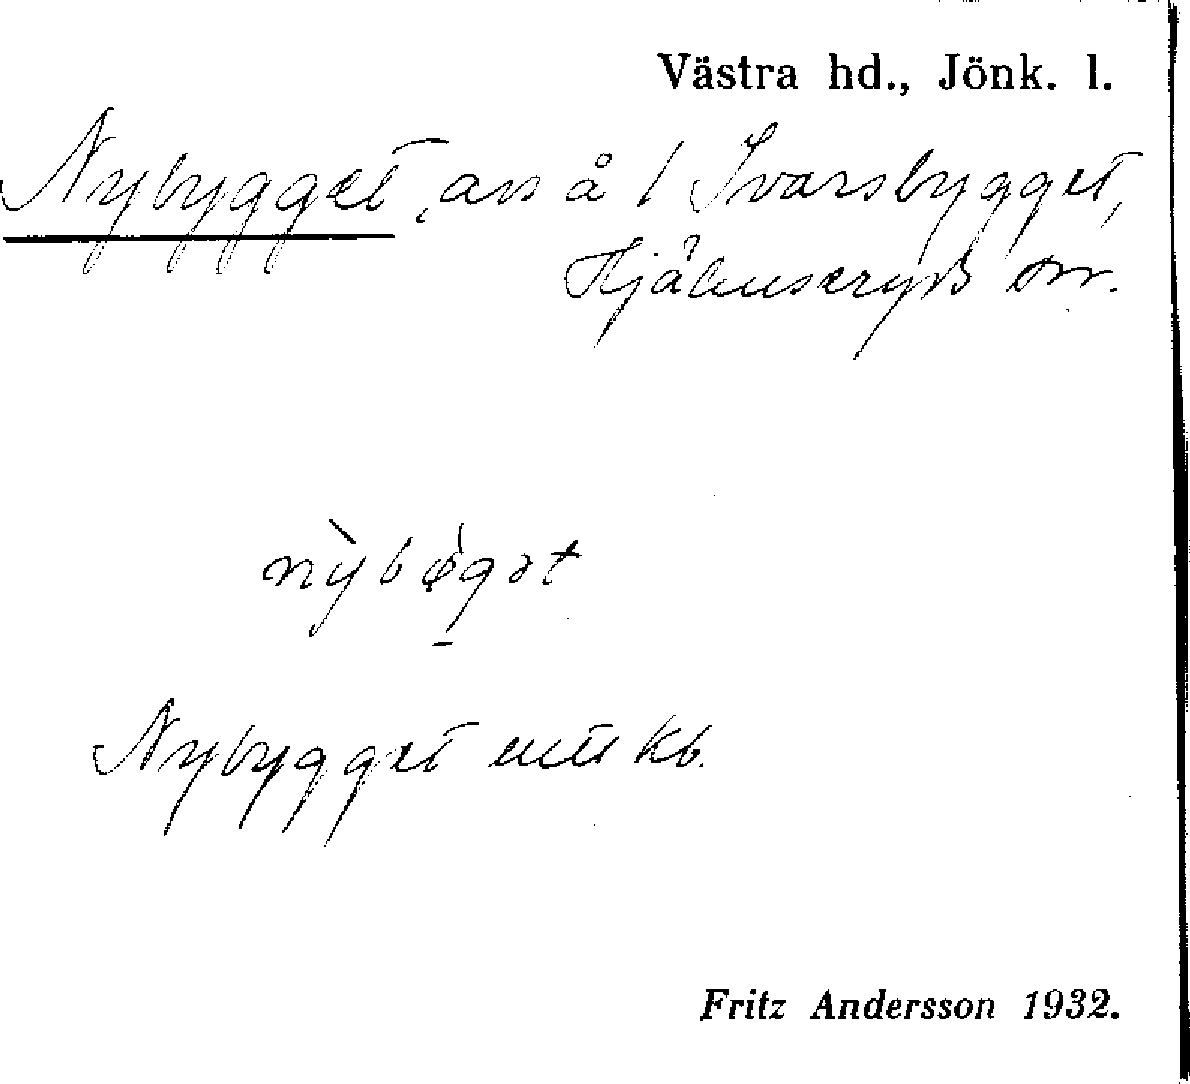 Västra hd., Jönk. l.
Nybygget, avs å 1 Ivarsbygget,
Hjälmseryds sn.
nỳbø̀gət
Nybygget enl kb.
Fritz Andersson 1932.